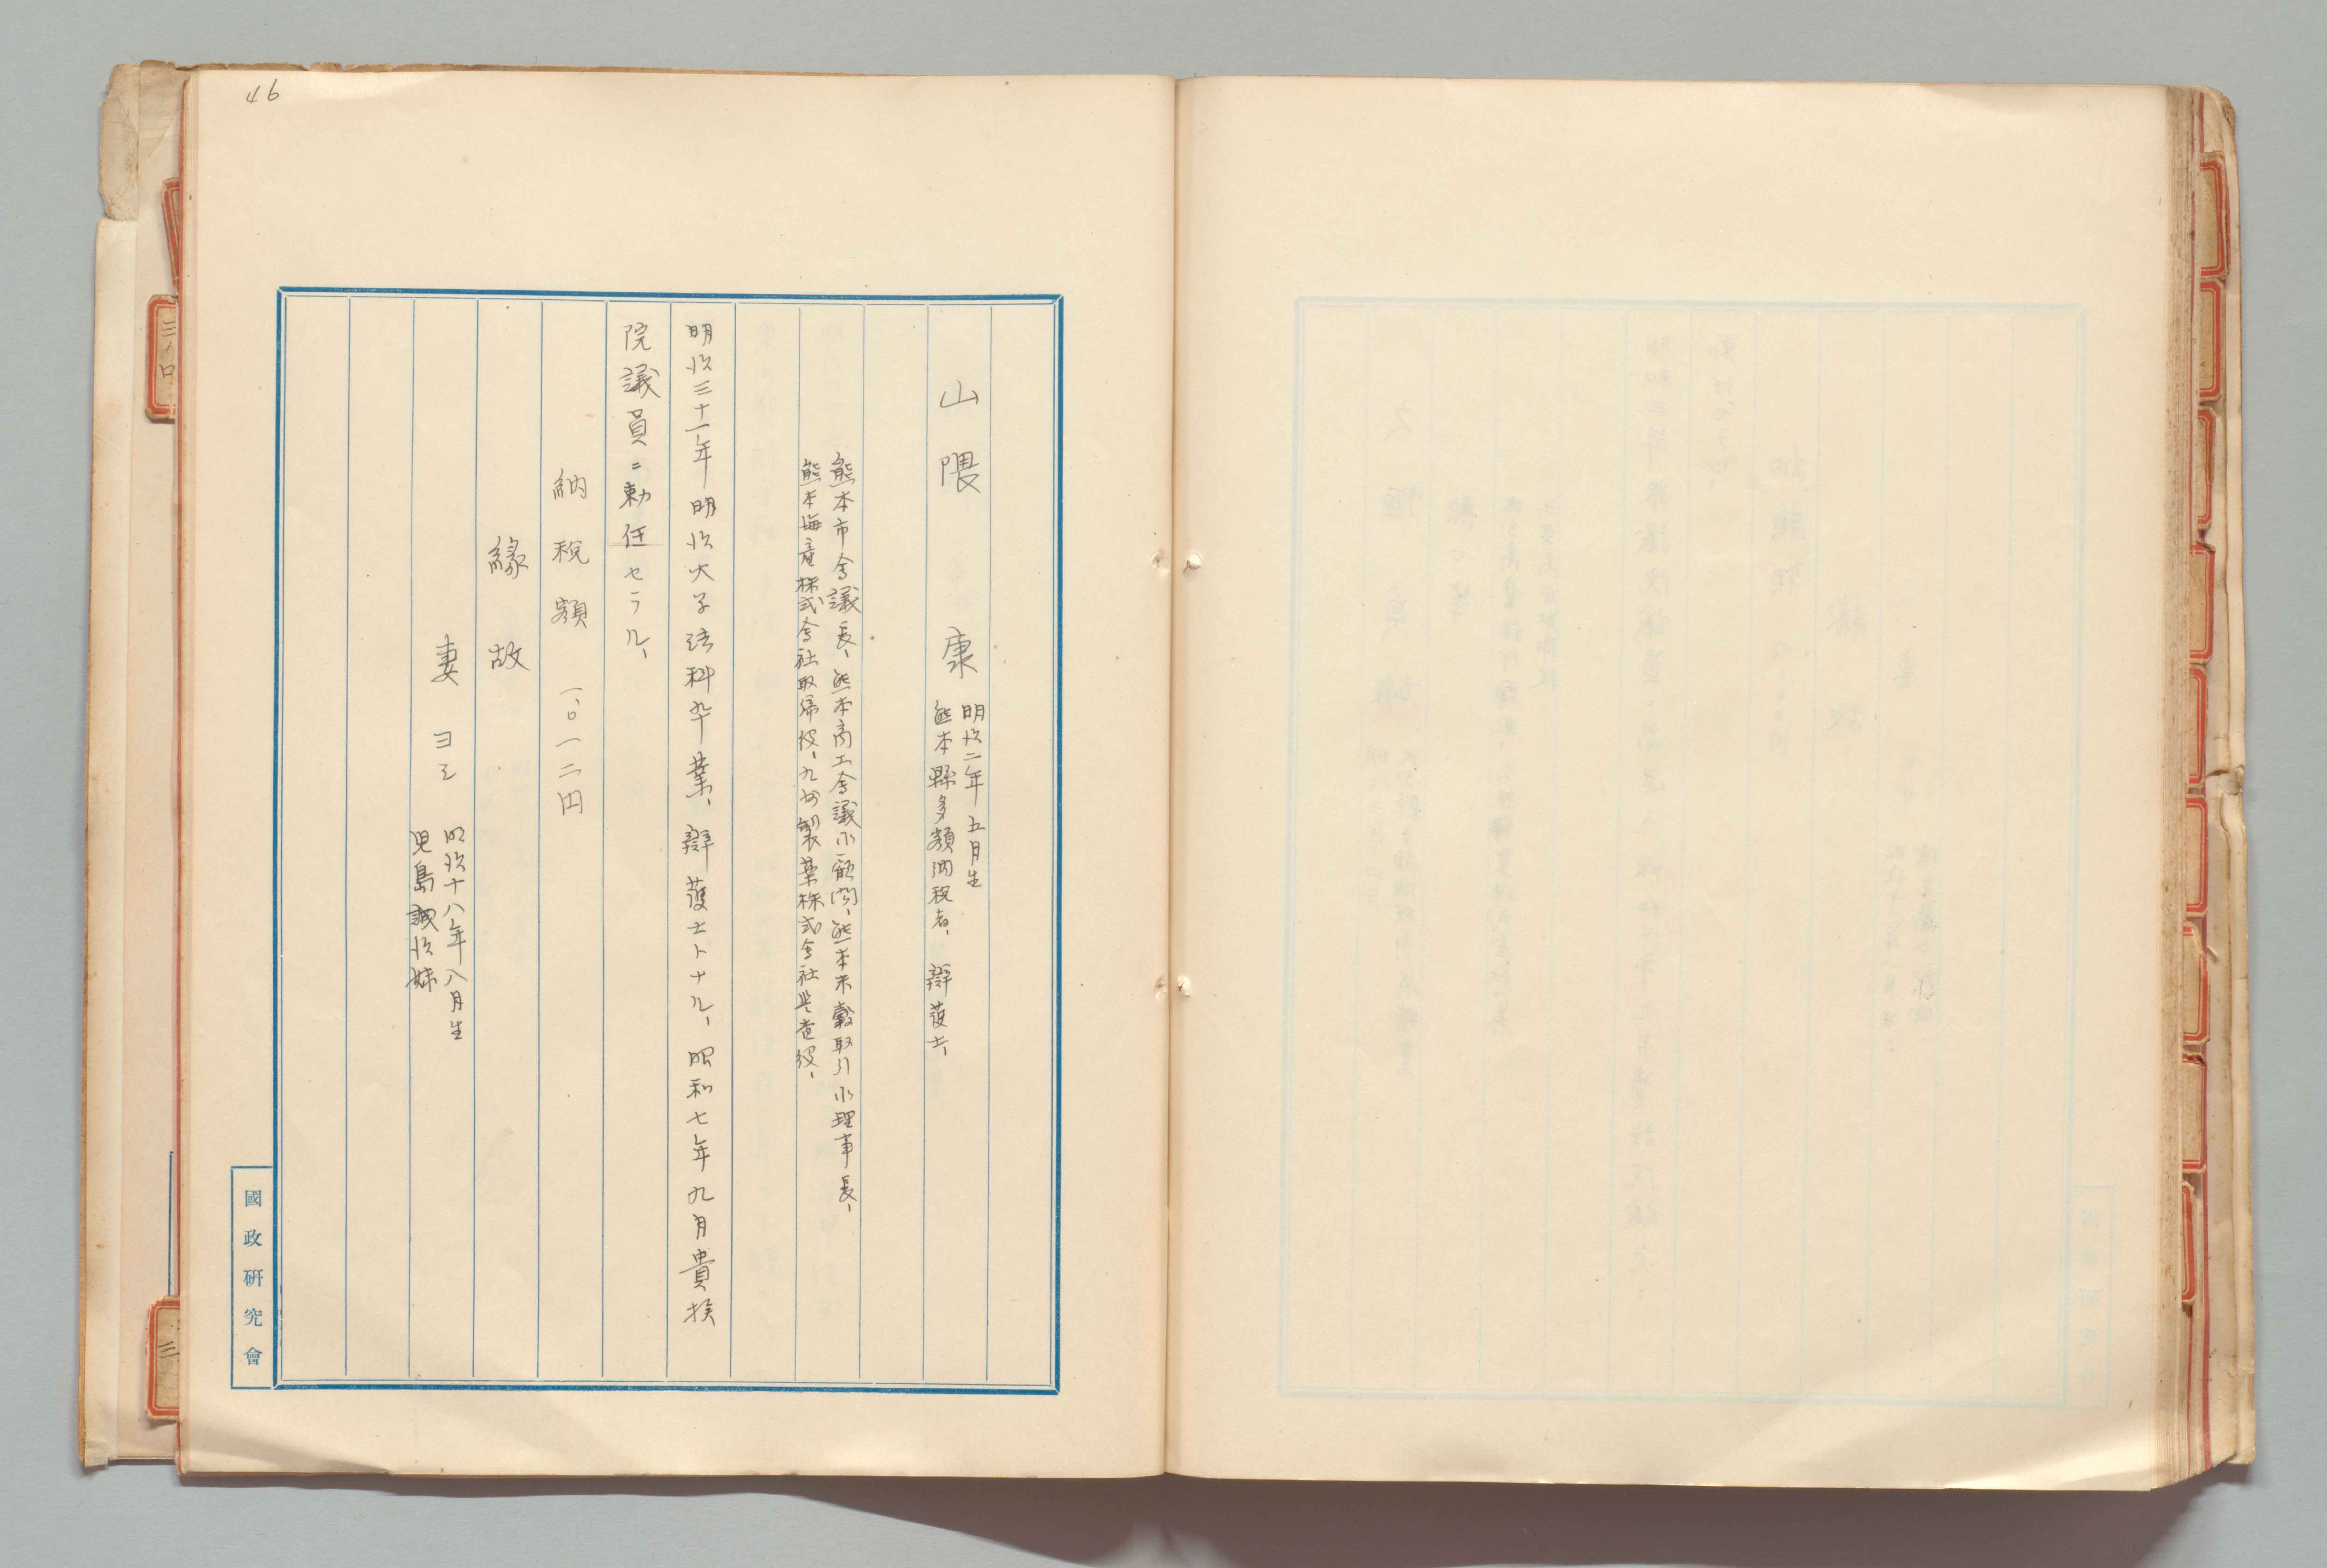 46
山隈 康
明治二年五月生
熊本縣多額納税者、辯護士、
熊本市会議長、熊本商工会議所顧問、熊本米穀取引所理事長、
熊本海産株式会社取締役、九州製薬株式会社監査役、
明治三十一年明治大学法科卒業、辯護士トナル、昭和七年九月貴族
院議員ニ勅任セラル、
納税額 一、〇一二円
縁故
妻 ヨシ
明治十八年八月生
児島誠治妹
國政研究會
三ノ口
三